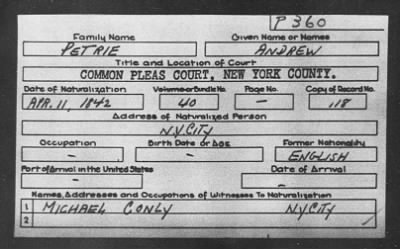 P 360
Family Name Given Name or Names
PETRIE ANDREW
Title and Location of Court
COMMON PLEAS COURT, NEW YORK COUNTY.
Date of Naturalization Volume or Bundle No. Page No. Copy of Record No.
APR. 11, 1842 40 — 118
Address of Naturalized Person
N.Y.CITY
Occupation Birth Date or Age Former Nationality
— — ENGLISH
Port of Arrival in the United States Date of Arrival
— —
Names, Addresses and Occupations of Witnesses To Naturalization
1 MICHAEL CONLY N.Y.CITY
2